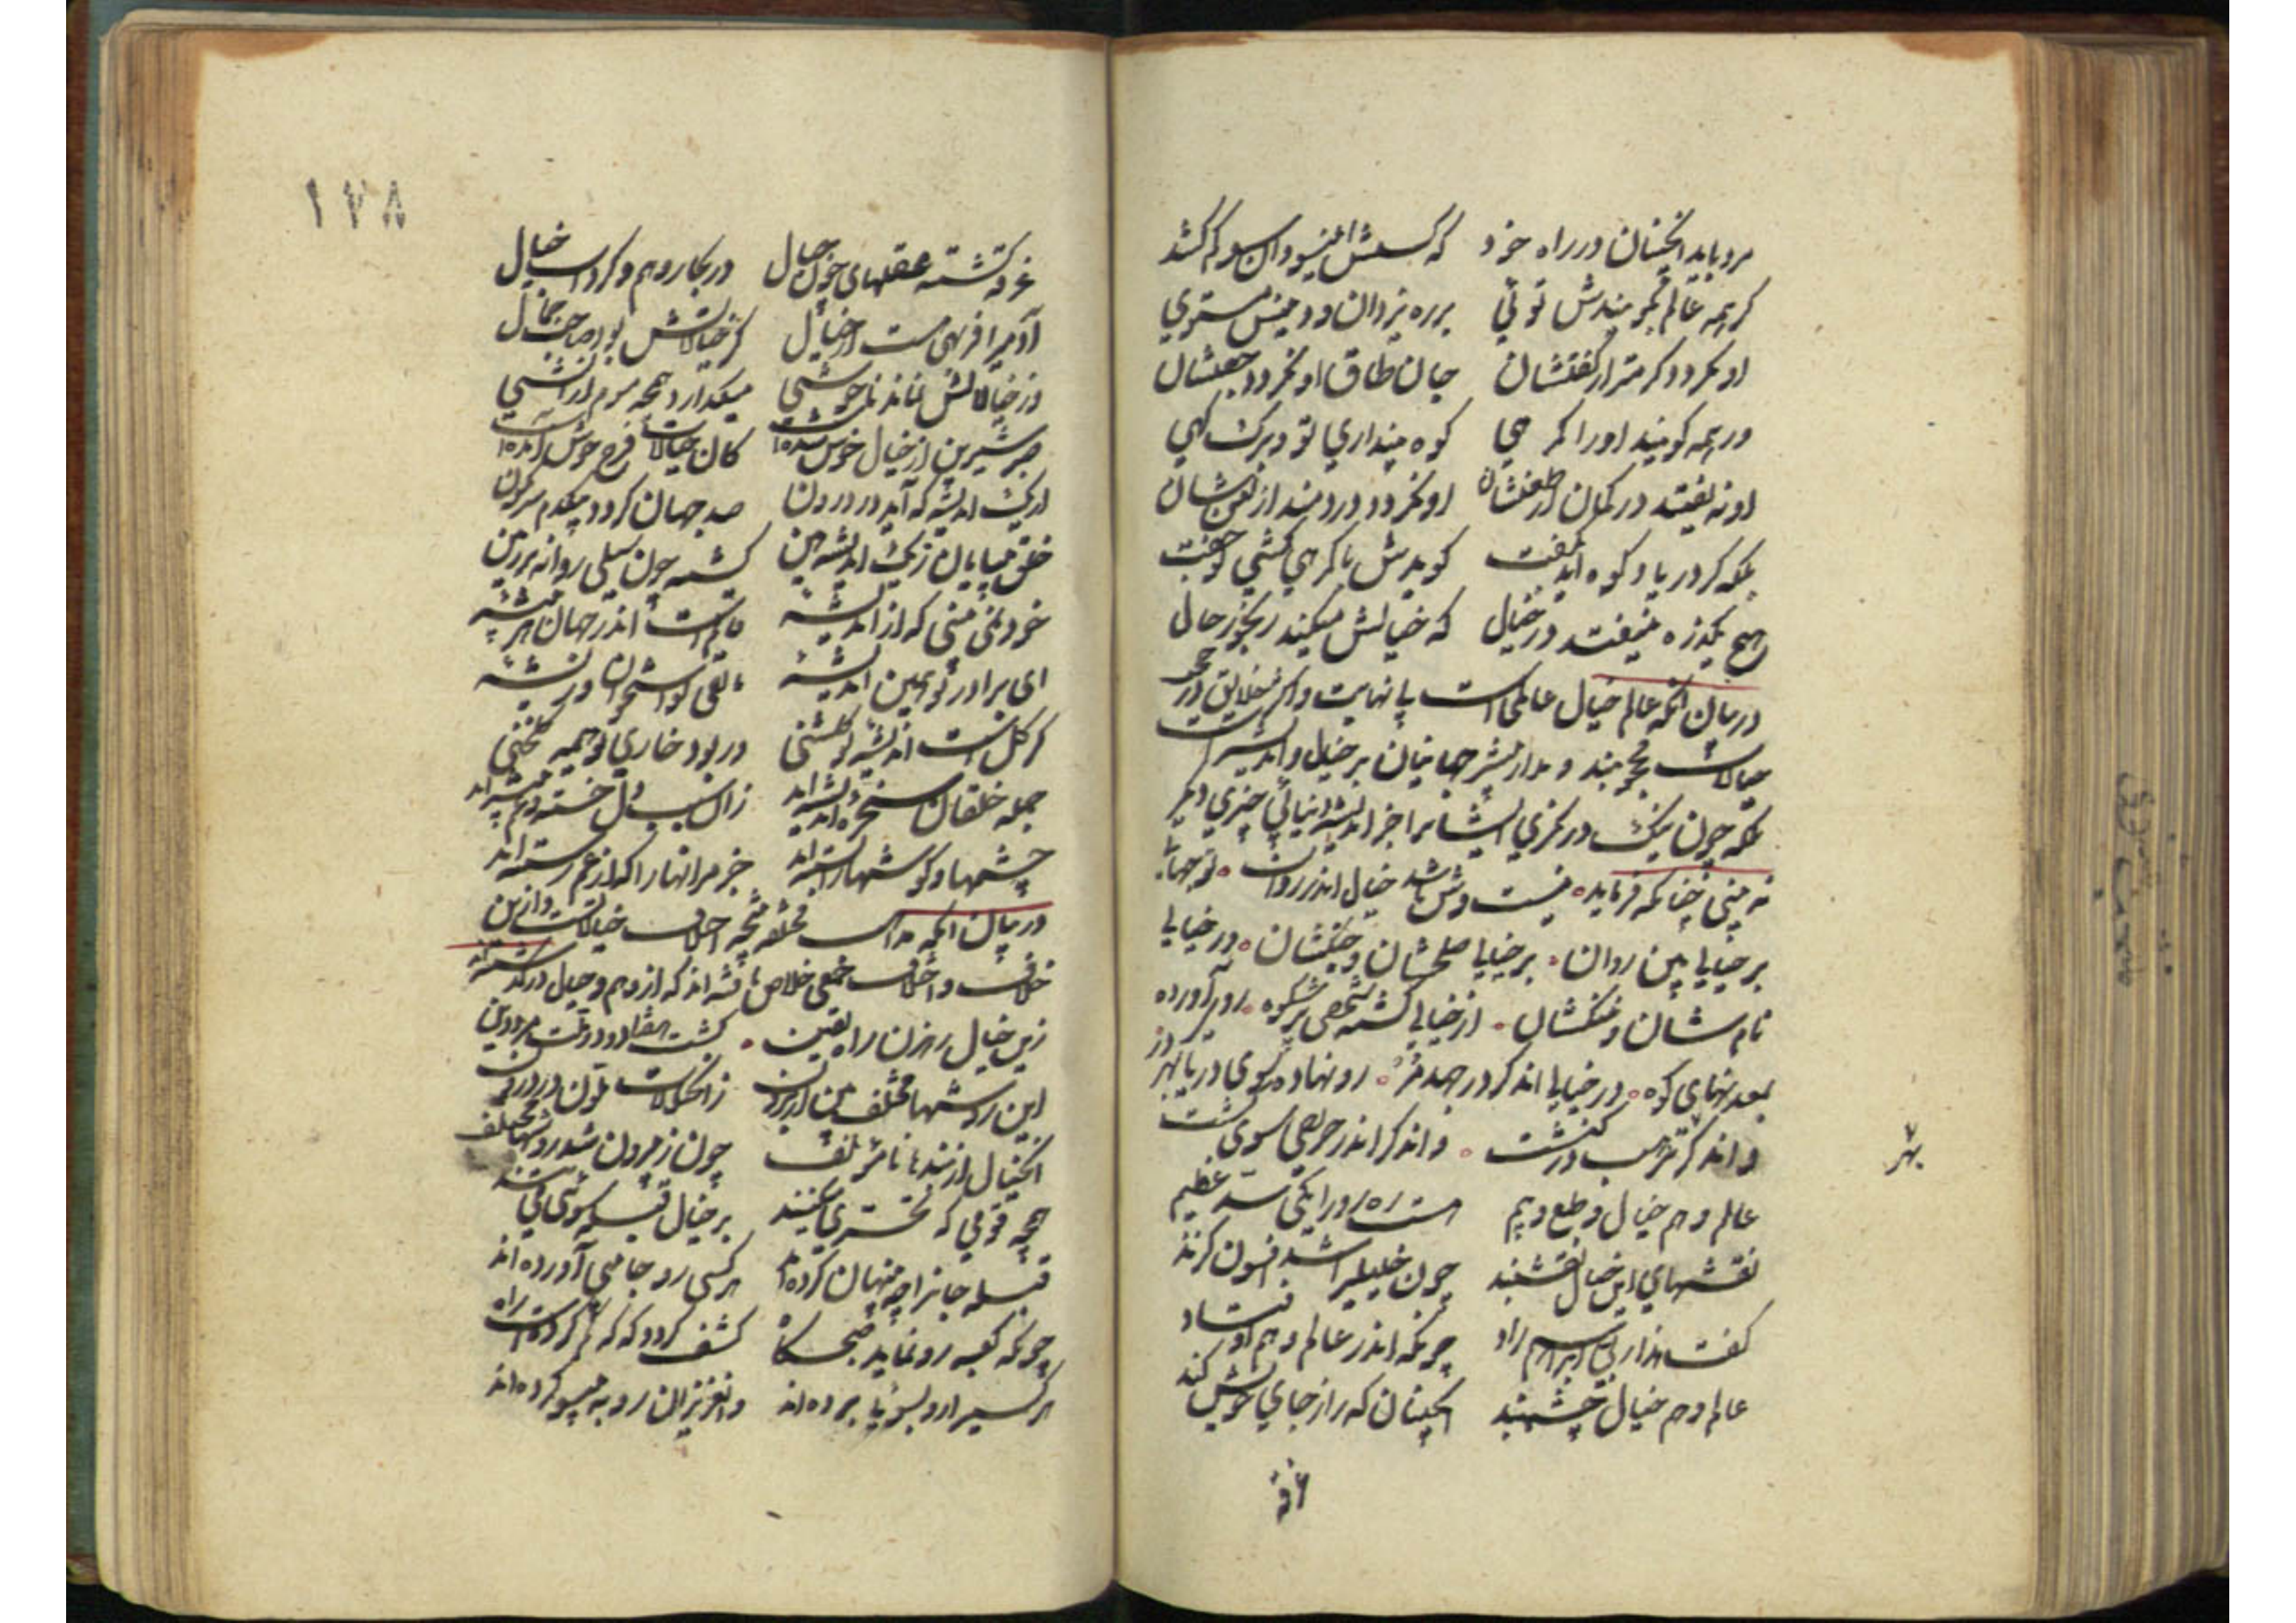 مرد باید اینچنان در راه خود که کسش اینسو و آن سو کم کشد
گر همه عالم بگویندش توئی بر ره یزدان و دین مستوی
او نگردد گرمتر از گفتشان جان طاق او نگردد جفتشان
ور همه گویند او را گمرهی کوه پنداری تو و برگ کهی
او نه بیفتد در گمان از طعنشان او نگردد دردمند از ظعن شان
بلکه گر دریا و کوه آید بگفت گویدش با گمرهی گشتی تو جفت
هیچ یکذره نیفتد در خیال که خیالش میکند رنجور حال
در بیان آنکه عالم خیال عالمی است بی نهایت و اکثر خلایق در
خیالات محجوبند و مدار بیشتر جهانیان بر خیال و اندیشه است
بلکه چون نیک در نگری ایشانرا جز اندیشه نیابی چیزی دیگر
نه بینی چنانکه فرماید نیست وش باشد خیال اندر روان تو جهانی
بر خیالی بین روان بر خیالی صلحشان و جنگشان در خیالی
نام شان و ننگشان از خیالی گشته شخصی پر شکوه روی آورده
بمعدنهای کوه در خیالی آن دگر در جهد مر رو نهاده سوی دریا بهر در
و آن دگر بهر ترهب در کنشت و آن دگر اندر حریصی سوی کشت
بهر
عالم وهم خیال و طمع و بیم هست رهرو را یکی سدی عظیم
نقشهای این خیال نقشبند چون خلیلی را شد افسون گزند
گفت هذا ربی ابراهیم راد چونکه اندر عالم وهم اوفتاد
عالم وهم خیال چشم بند آنچنان که را ز جای خویش کند
غرقه
۱۷۸
غرقه گشته عقلهای چون جبال در بحار وهم و گرداب خیال
آدمی را فربهی هست از خیال گر خیالاتش بود صاحب جمال
ور خیالاتش نماند ناخوشی میگدازد همچو موم از آتشی
صبر شیرین از خیال خوش شده است کان خیالات فرح خوش آمده است
از یک اندیشه که آید در درون صد جهان گردد بیکدم سرنگون
خلق بی پایان ز یک اندیشه بین گشته چون سیلی روانه بر زمین
خود نمی بینی که از اندیشه قایم است اندر جهان هر پیشه
ای برادر تو همین اندیشه مابقی تو استخوان و ریشه
گر گل است اندیشه تو گلشنی ور بود خاری تو هیمه گلخنی
جمله خلقان سخره اندیشه اند زان سبب دل خسته و غم پیشه اند
چشمها و گوشها را بسته اند جز مر آنها را که از غم رسته اند
در بیان آنکه مذاهب مختلفه نتیجه اختلاف خیالات است و ازین
خلاف و اختلاف جمعی خلاص یافته اند که از وهم و خیال در گذشته اند
زین خیال رهزن راه یقین گشت هفتاد و دو ملت مرد دین
این روشها مختلف بین از برون زان خیالات ملون در درون
این خیال ار نبد نامؤتلف چون ز بیرون شد روشها مختلف
همچو قومی که تحری میکنند بر خیال قبله سوئی می تنند
قبله جانرا چو پنهان کرده اند هر کسی رو جانبی آورده اند
چونکه کعبه رو نماید صبحگاه کشف گردد که که گم کرده است راه
هر کسی را رو بسوئی برده اند و آن عزیزان رو به بیسو کرده اند